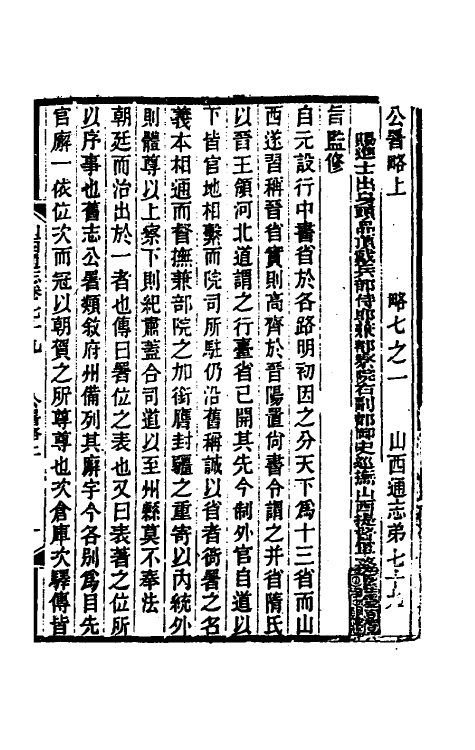 公署略上　略七之一　山西通志第七十九
賜進士出身頭品頂戴兵部侍郎兼都察院右副都御史巡撫山西提督軍務
言監修
自元設行中書省於各路明初因之分天下爲十三省而山
西遂習稱晉省實則高齊於晉陽置尙書令謂之并省隋氏
以晉王領河北道謂之行臺省已開其先今制外官自道以
下皆官地相繫而院司所駐仍沿舊稱誠以省者衙署之名
義本相通而督撫兼部院之加銜膺封疆之重寄以內統外
則體尊以上察下則紀肅蓋合司道以至州縣莫不奉法
朝廷而治出於一者也傳曰署位之表也又曰表著之位所
以序事也舊志公署類敘府州備列其廨宇今各別爲目先
官廨一依位次而冠以朝賀之所尊尊也次倉庫次驛傳皆